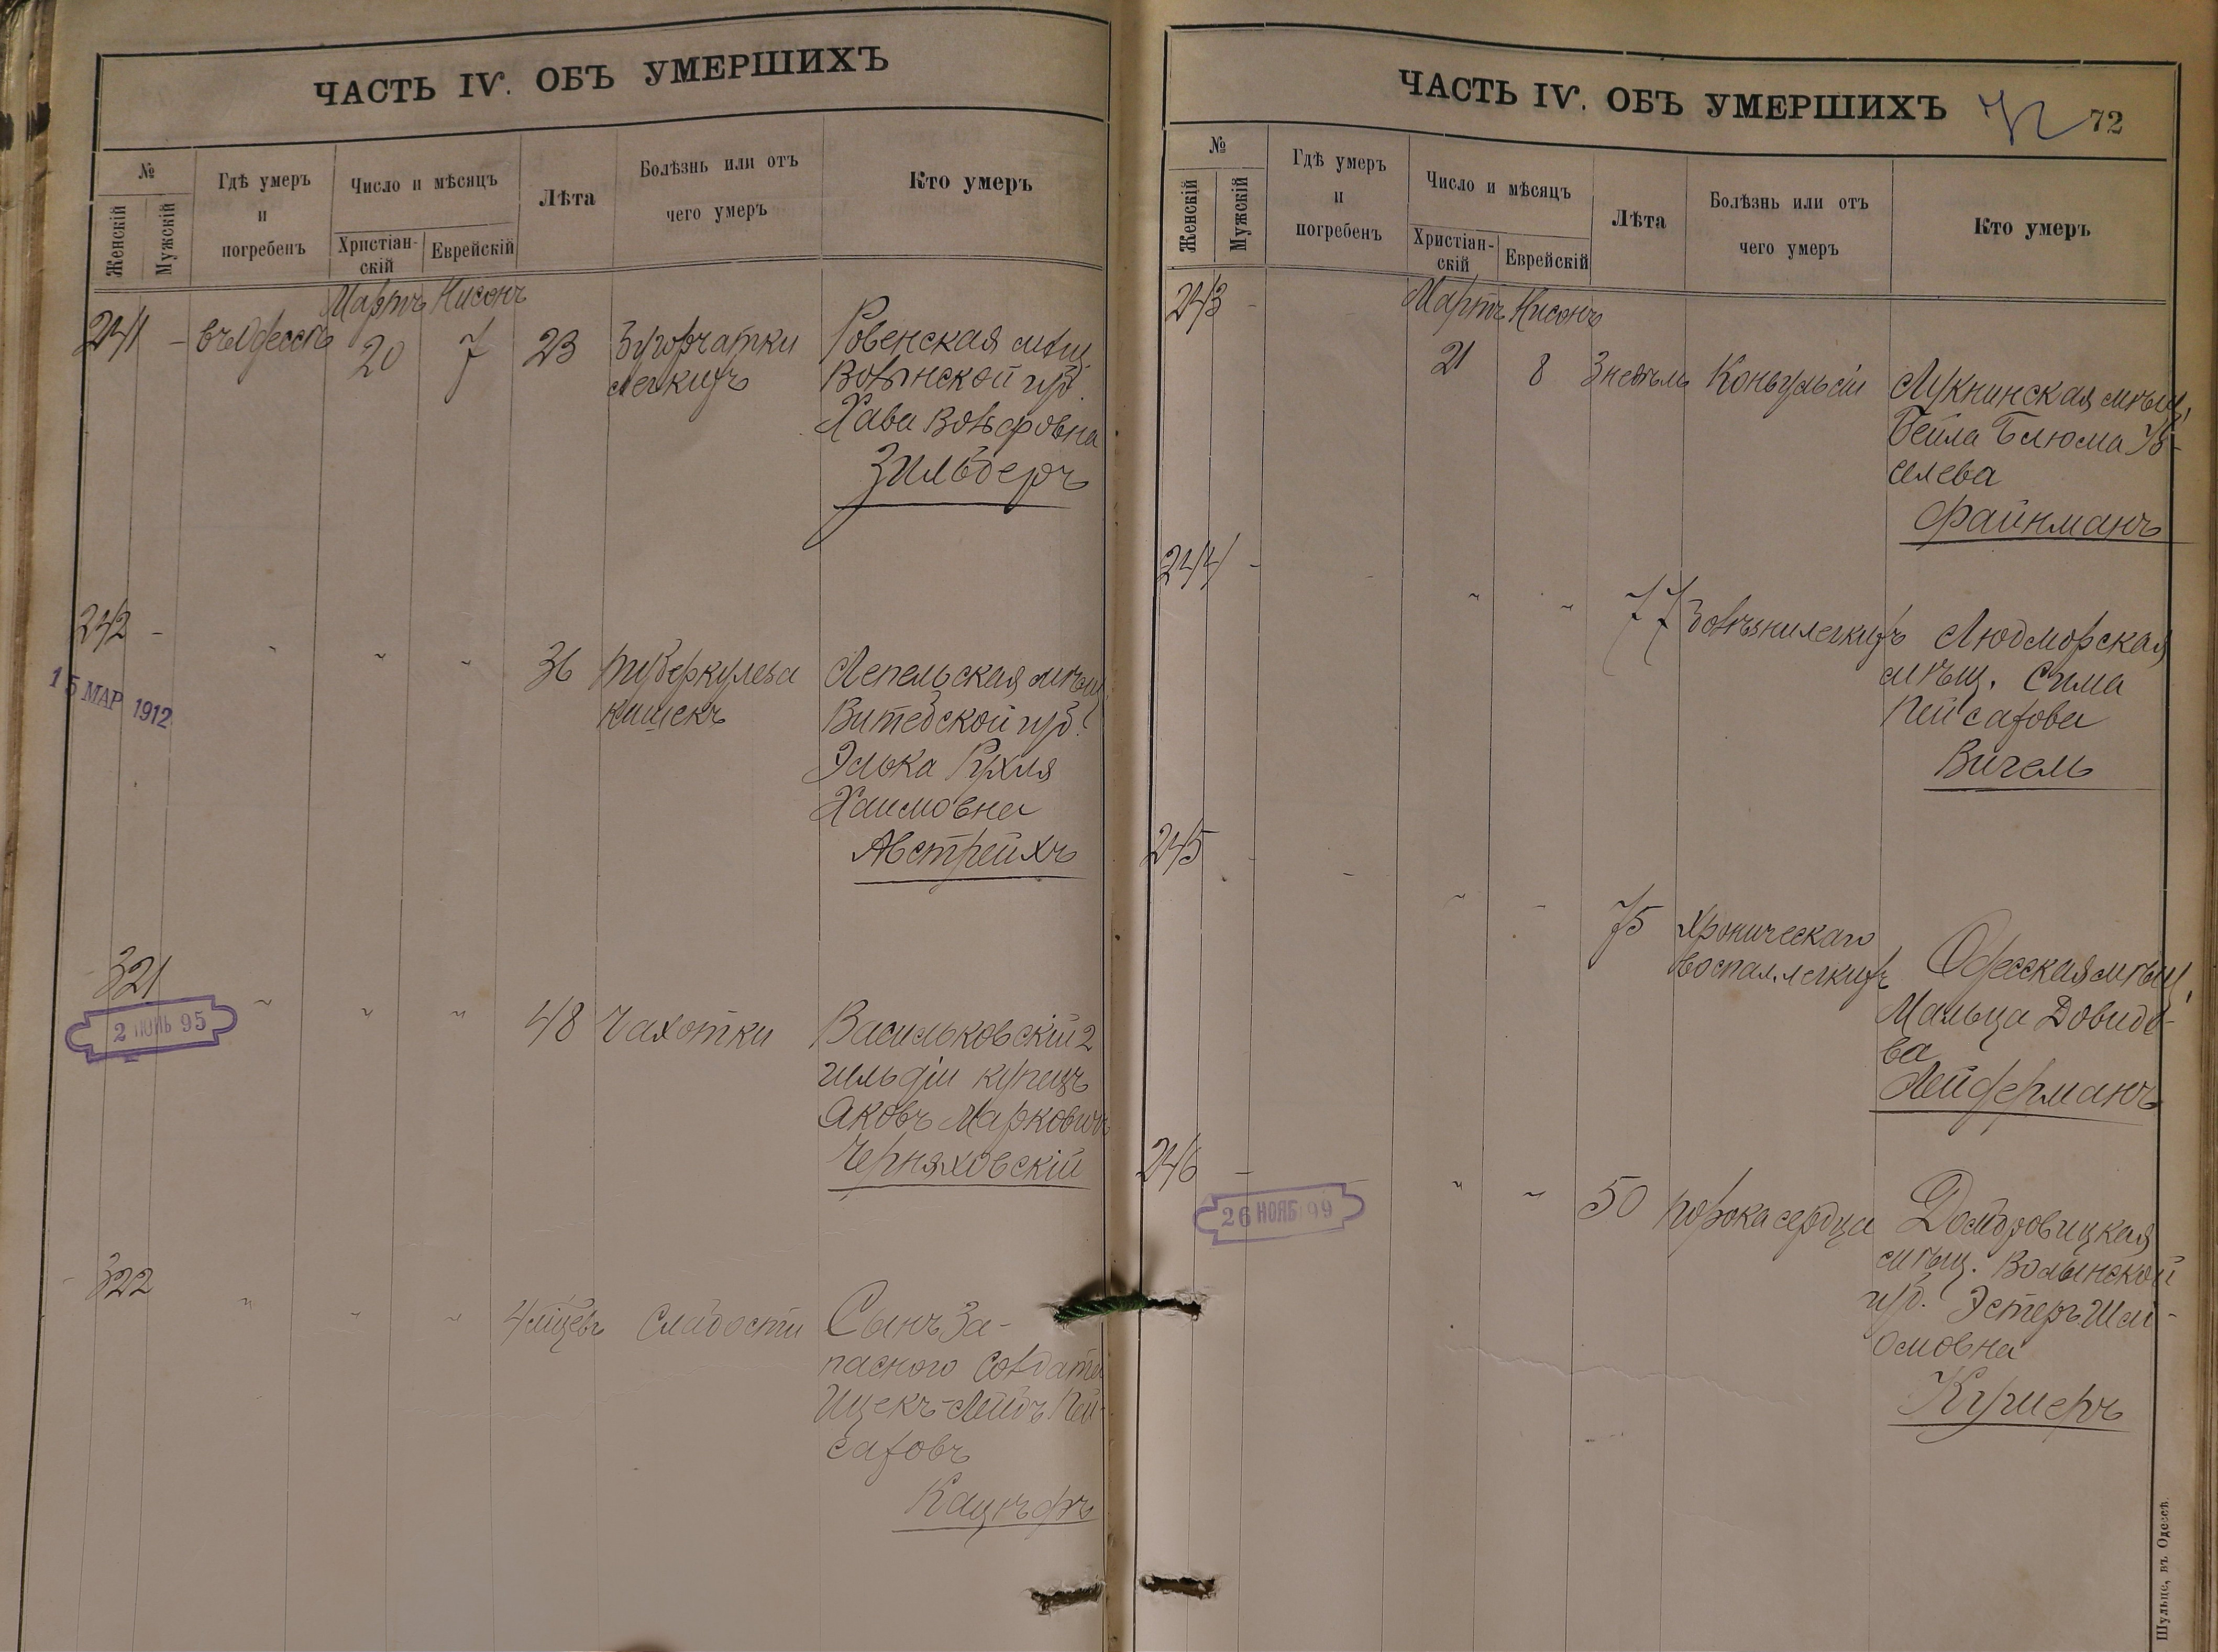 ЧАСТЬ IV. ОБЪ УМЕРШИХЪ
№
Женскій
Мужскій
Гдѣ умеръ
и
погребенъ
Число и мѣсяцъ
Христіан-
скій
Еврейскій
Лѣта
Болѣзнь или отъ
чего умеръ
Кто умеръ
Мартъ Нисонъ
241 - въ Одессѣ 20 7 23 Бугорчатки Ровенская мѣщ.
легкихъ Волынской губ.
Хава Вольфовна
Зильберъ
242 - " " " 36 туберкулеза Лепельская мѣщ.
кишекъ Витебской губ.
15 МАР 1912
Элька Рухля
Хаимовна
Австрейхъ
321 " " " 48 Чахотки Васильковскій 2
2 ІЮНЬ 95
гильдіи купецъ
Яковъ Марковичъ
Черняховскій
322 " " " 4 мѣсц. Слабости Сынъ За-
пасного Солдата
Ицекъ-Лейбъ Пей-
саховъ
ЧАСТЬ IV. ОБЪ УМЕРШИХЪ 72 72
№
Женскій
Мужскій
Гдѣ умеръ
и
погребенъ
Число и мѣсяцъ
Христіан-
скій
Еврейскій
Лѣта
Болѣзнь или отъ
чего умеръ
Кто умеръ
243 - Мартъ Нисонъ
21 8 3 недѣль Конвульсіи мѣщ.
Бейла Блюма Іо-
селева
Файнманъ
244 - " " 77 Болѣзни легкихъ
мѣщ. Сима
Пейсахова
Вигель
245 - " " 75 Хроническаго
воспал. легкихъ Одесская мѣщ.
Мальца Довидо-
ва
Лейферманъ
246 - " " 50 порока сердца Домбровицкая
26 НОЯБ 99
мѣщ. Волынской
губ. Эстеръ Шлі-
омовна
Кушеръ
Шульце, въ Одессѣ.